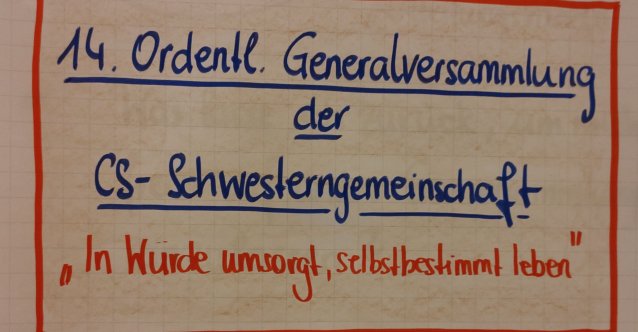 14. Ordentl. Generalversammlung
der
CS- Schwesterngemeinschaft
„In Würde umsorgt, selbstbestimmt leben"